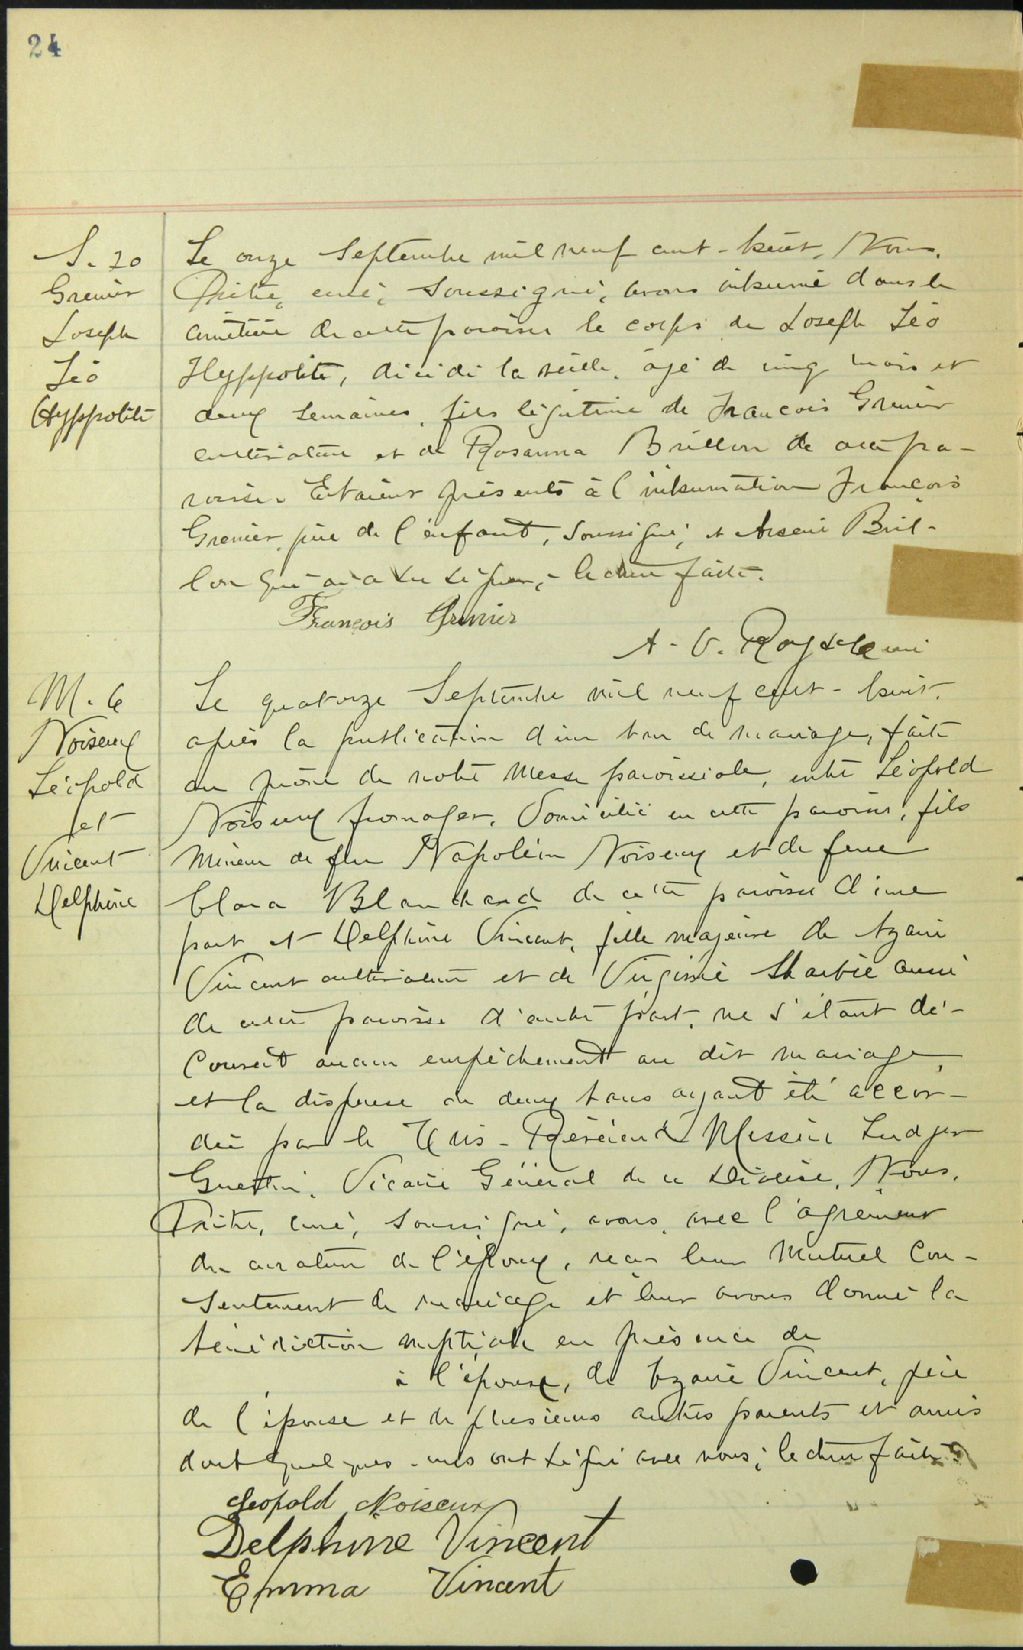 24
S. 20
Grenier
Joseph
Léo
Hyppolite
Le onze Septembre mil neuf cent-huit, Nous,
Prêtre, curé, soussigné, avons inhumé dans le
cimetière de cette paroisse le corps de Joseph Léo
Hyppolite, décédé la veille, âgé de cinq mois et
deux semaines, fils légitime de François Grenier
cultivateur et de Rosanna Brillon de cette pa-
roisse. Etaient présents à l'inhumation François
Grenier, père de l'enfant, soussigné, et Arsène Bril-
lon qui n'a su signer; lecture faite.
François Grenier
A. V. Roy ptre curé
M. 6
Noiseux
Léopold
et
Vincent
Delphine
Le quatorze Septembre mil neuf cent-huit,
après la publication d'un ban de mariage, faite
au prône de notre Messe paroissiale, entre Léopold
Noiseux fromager, domicilié en cette paroisse, fils
mineur de feu Napoléon Noiseux et de feue
Clara Blanchard de cette paroisse d'une
part et Delphine Vincent, fille majeure de Azarie
Vincent cultivateur et de Virginie aussi
de cette paroisse d'autre part, ne s'étant dé-
couvert aucun empêchement au dit mariage
et la dispense de deux bans ayant été accor-
dée par le Très-Révérend Messire
Vicaire Général de ce Diocèse, Nous,
Prêtre, curé, soussigné, avons, avec l'agrément
du curateur de l'époux, reçu leur mutuel con-
sentement de mariage et leur avons donné la
bénédiction nuptiale en présence de
à l'époux, de Azarie Vincent, père
de l'épouse et de plusieurs autres parents et amis
dont quelques-uns ont signé avec nous; lecture faite.
Leopold Noiseux
Delphine Vincent
Emma Vincent